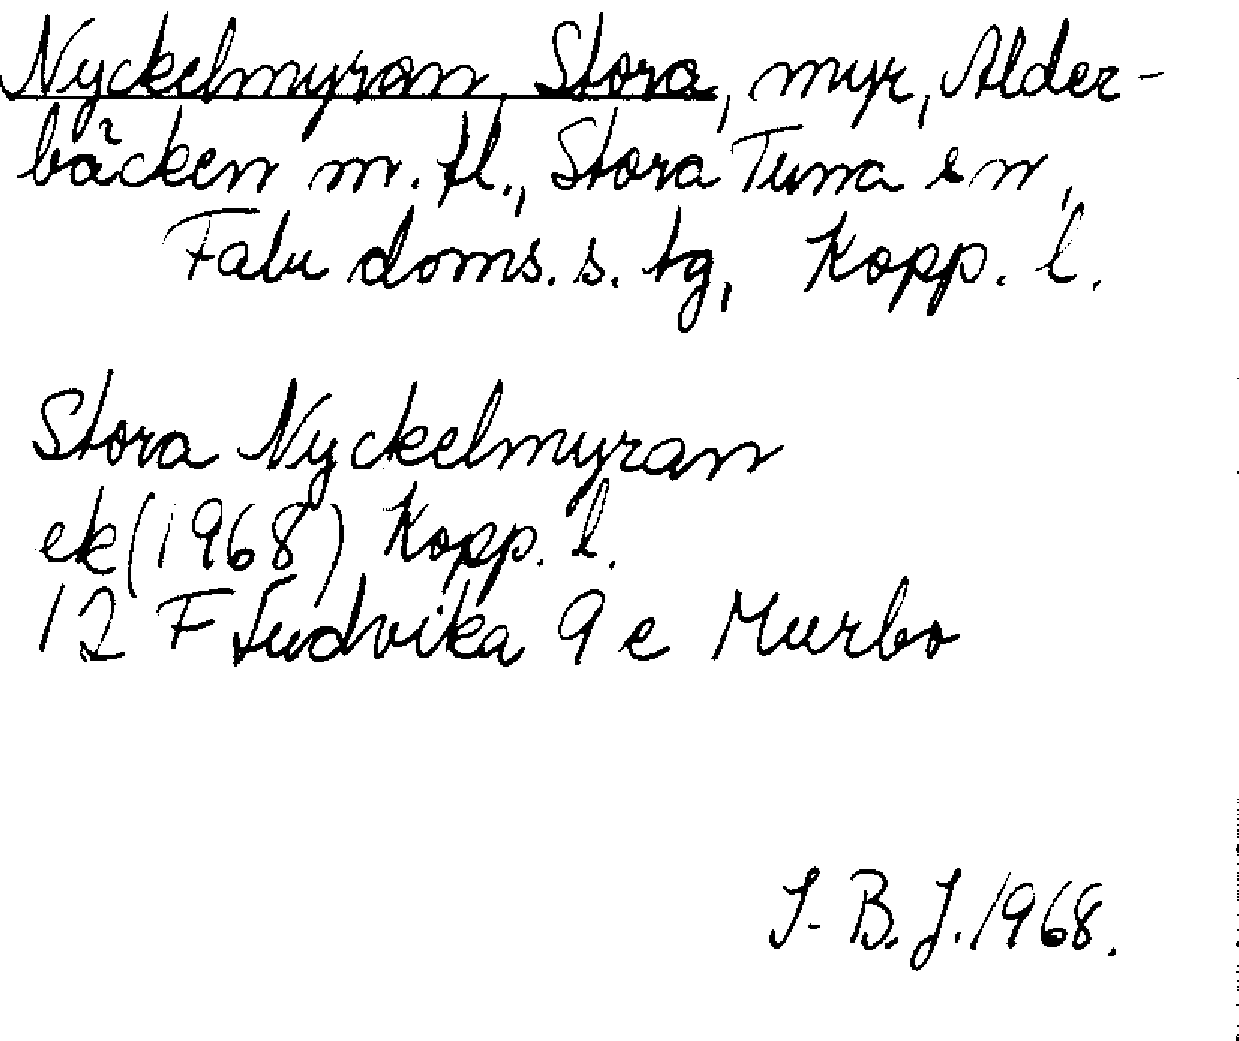 Nyckelmyran, Stora, myr, Alder-
bäcken m. fl., Stora Tuna sn,
Falu doms. s. tg, Kopp. l.
Stora Nyckelmyran
ek (1968) Kopp. l.
12 F Ludvika 9 e Murbo
I-B. J. 1968.